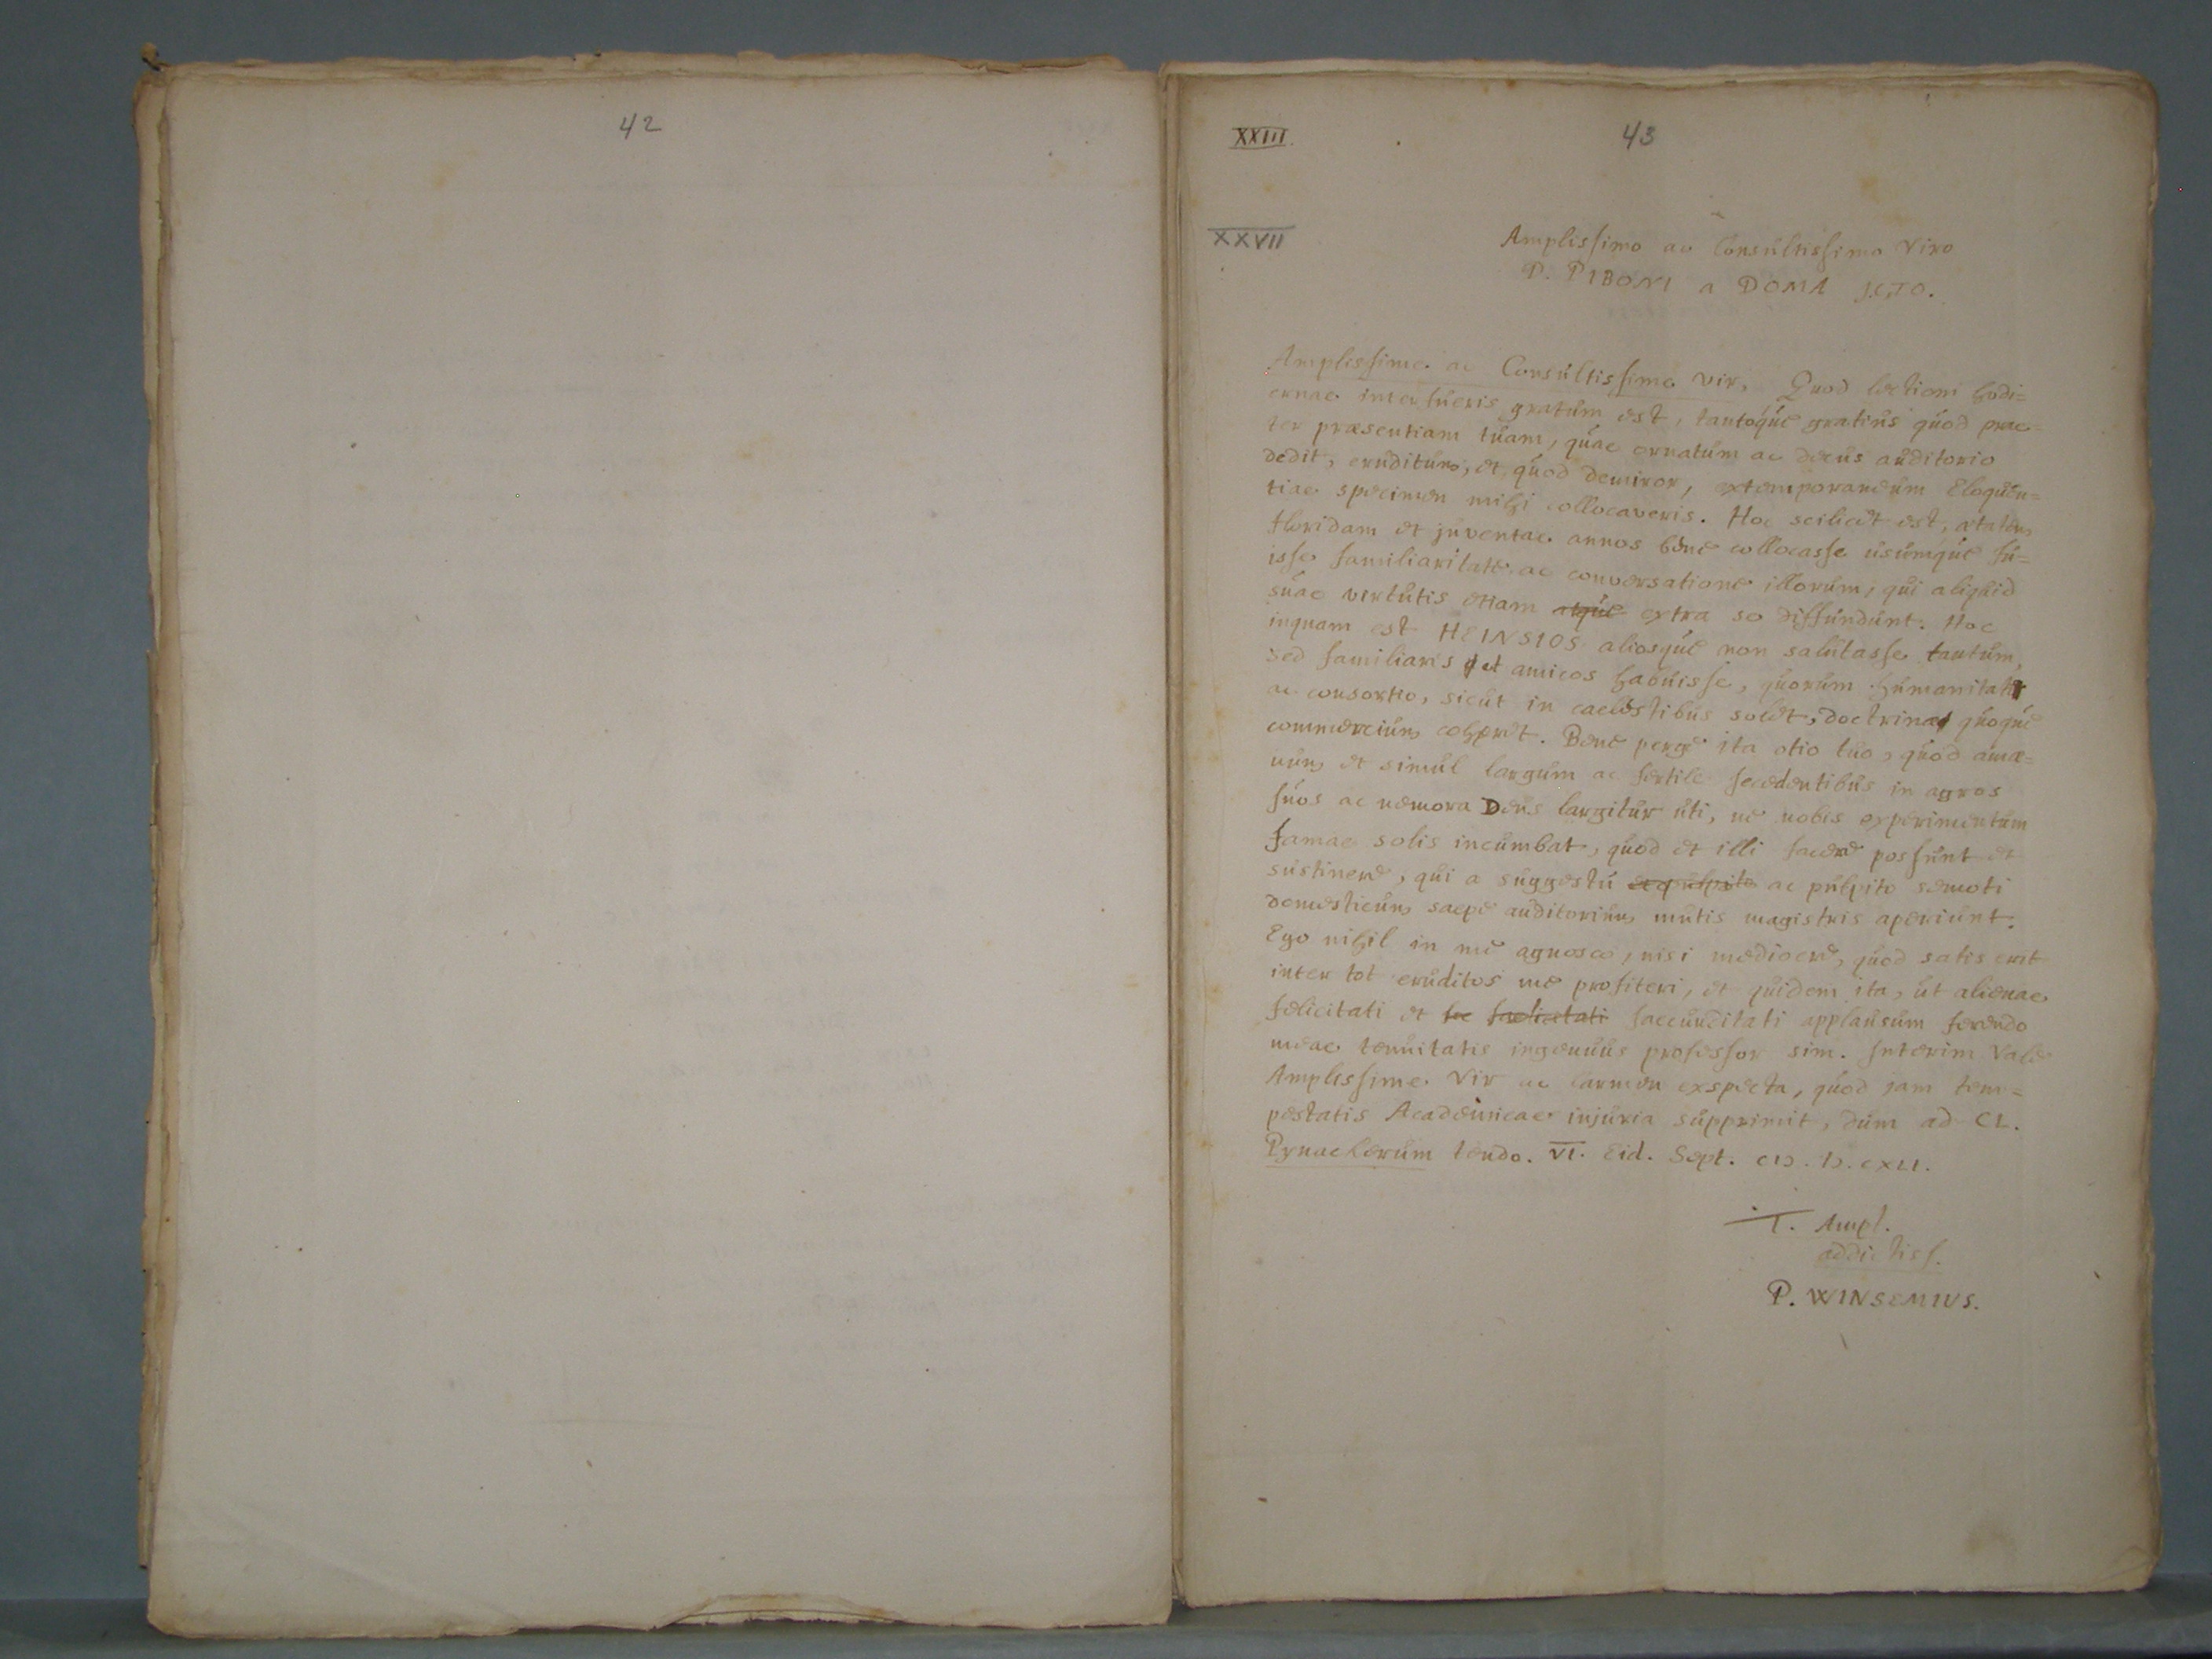 42
XXIII.
43
XXVII
Amplissimo ac Consultissimo Viro
D. PIBONI a DOMA J.C.TO.
Amplissime ac Consultissime vir, Quod lectioni hodi=
ernae interfueris gratum est, tantoque gratius quod prae=
ter praesentiam tuam, quae ornatum ac decus auditorio
dedit, eruditum, et quod demiror, extemporaneum Eloquen=
tiae specimen mihi collocaveris. Hoc scilicet est, aetatem
floridam et juventae annos bene collocasse usumque fu=
isse familiaritate ac conversatione illorum, qui aliquid
suae virtutis etiam atque extra se diffundunt. Hoc
inquam est HEINSIOS aliosque non salutasse tantum,
sed familiares et amicos habuisse, quorum humanitate
ac consortio, sicut in caelestibus solet, doctrinae quoque
commercium cohaeret. Bene perge ita otio tuo, quod amae=
num et simul largum ac fertile secedentibus in agros
suos ac nemora Deus largitur uti, ne nobis experimentum
famae solis incumbat, quod et illi facere possunt et
sustinere, qui a suggestu ac pulpito ac pulpito semoti
domesticum saepe auditorium mutis magistris aperiunt.
Ego nihil in me agnosco, nisi mediocre, quod satis erit
inter tot eruditos me profiteri, et quidem ita, ut alienae
felicitati et fae faelicitati faecunditati applausum ferendo
meae tenuitatis ingenuus professor sim. Interim Vale
Amplissime Vir ac carmen exspecta, quod jam tem=
pestatis Academicae injuria supprimit, dum ad CL.
Pynackerum tendo. VI. Eid. Sept. CIↃ.IↃ.CXLI.
T. Ampl.
addictiss.
P. WINSEMIUS.